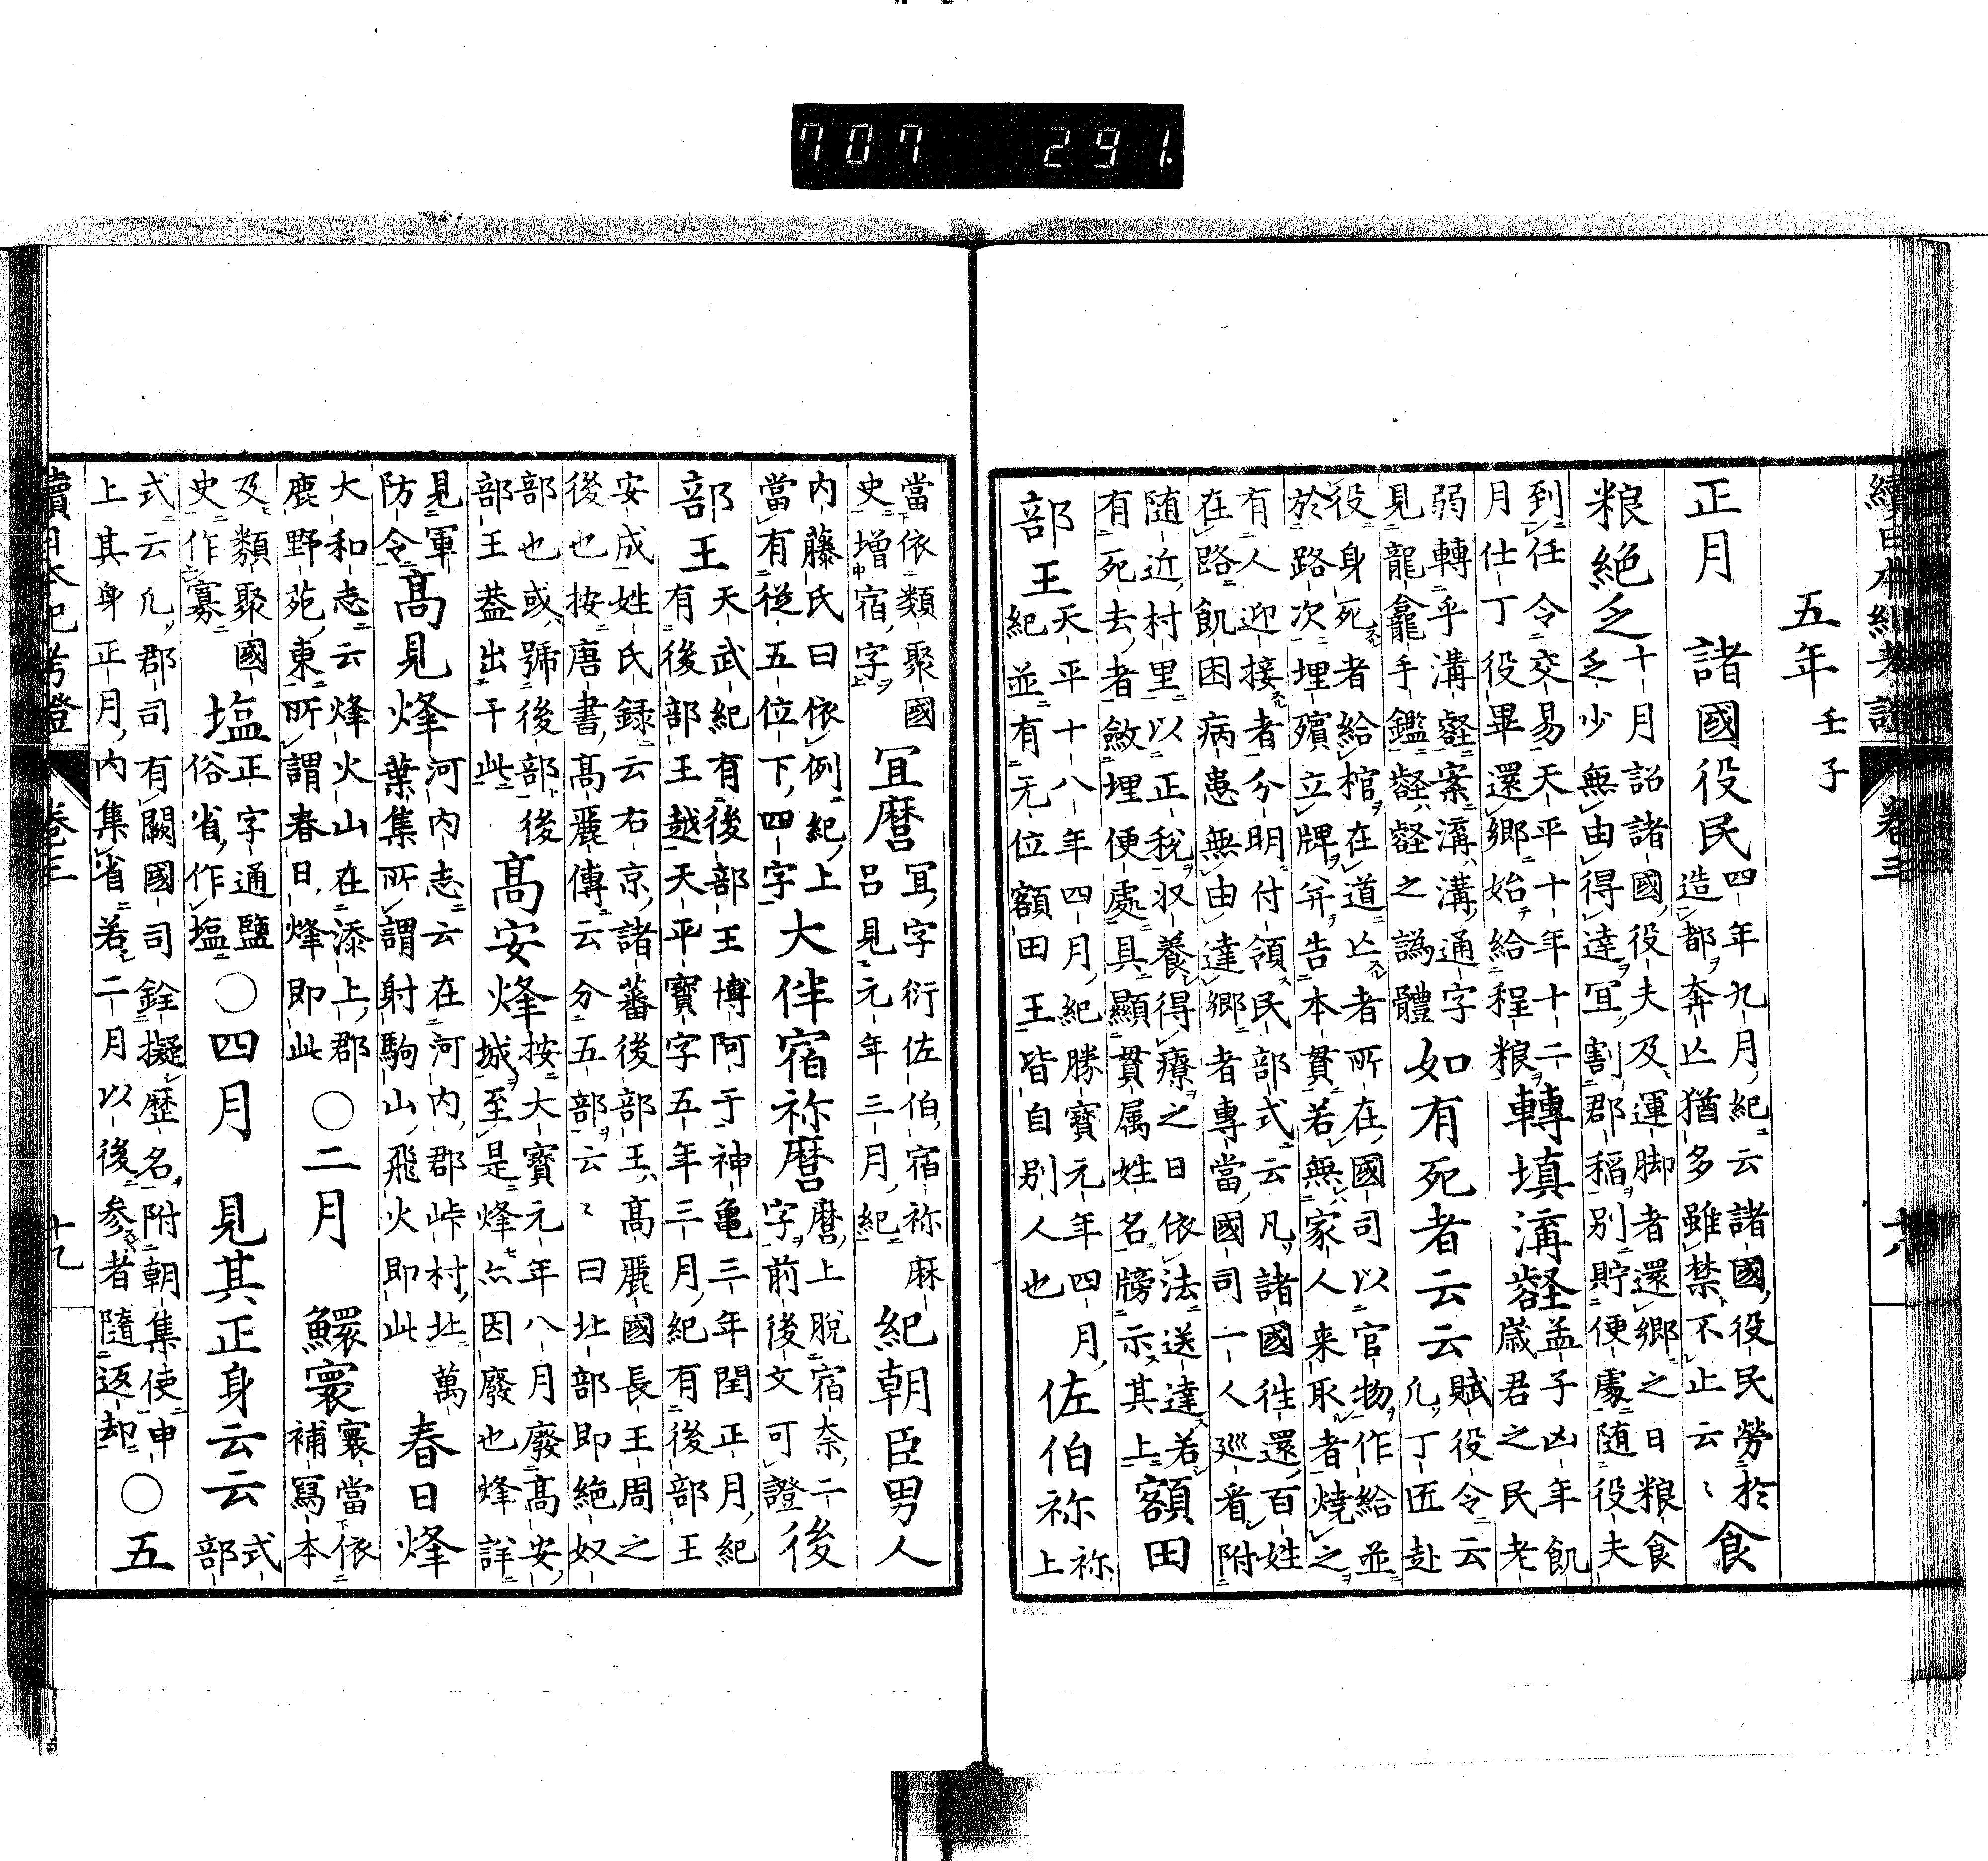 707 291
續日本紀考證 卷三
五年 壬子
正月 諸國役民 四年九月紀云諸國役民勞於
造都奔亡猶多雖禁不止云〻 食
粮絶乏 十月詔諸國役夫及運脚者還鄉之日粮食
乏少無由得達冝割郡稻別貯便處随役夫
到任令交易天平十年十二
月仕丁役畢還鄉始給程粮 轉填溝壑 孟子凶年飢
歳君之民老
弱轉乎溝壑案溝溝通字
見龍龕手鑑壑壑之譌體 如有死者云云 賦役令云
凢丁匠赴
役身死者給棺在道亡者所在國司以官物作給並
於路次埋殯立牌并告本貫若無家人来取者燒之
有人迎接者分明付領民部式云凡諸國徃還百姓
在路飢困病患無由達鄉者專當國司一人巡看附
随近村里以正税収養得療之日依法送達若
有死去者斂埋便處具顯貫属姓名牓示其上 額田
部王 天平十八年四月紀勝寶元年四月
紀並有无位額田王皆自别人也 佐伯祢 祢
上
當依類聚國
史增宿字 冝麿 冝字衍佐伯宿祢麻
呂見元年三月紀 紀朝臣男人
内藤氏曰依例紀上
當有從五位下四字 大伴宿祢麿 麿上脱宿奈二
字前後文可證 後
部王 天武紀有後部王博阿于神亀三年閏正月紀
有後部王越天平寶字五年三月紀有後部王
安成姓氏録云右京諸蕃後部王髙麗國長王周之
後也按唐書髙麗傳云分五部云〻曰北部即絶奴
部也或號後部後
部王葢出于此 髙安烽 按大寶元年八月廢髙安
城至是烽亦因廢也烽詳
見軍
防令 髙見烽 河内志云在河内郡峠村北萬
葉集所謂射駒山飛火即此 春日烽
大和志云烽火山在添上郡
鹿野苑東所謂春日烽即此 〇二月 鰥寰 寰當依
補寫本
及類聚國
史作寡 塩 正字通鹽
俗省作塩 〇四月 見其正身云云 式
部
式云凢郡司有闕國司銓擬歴名附朝集使申
上其身正月内集省若二月以後参者隨返却 〇五
續日本紀考證 卷三 十九